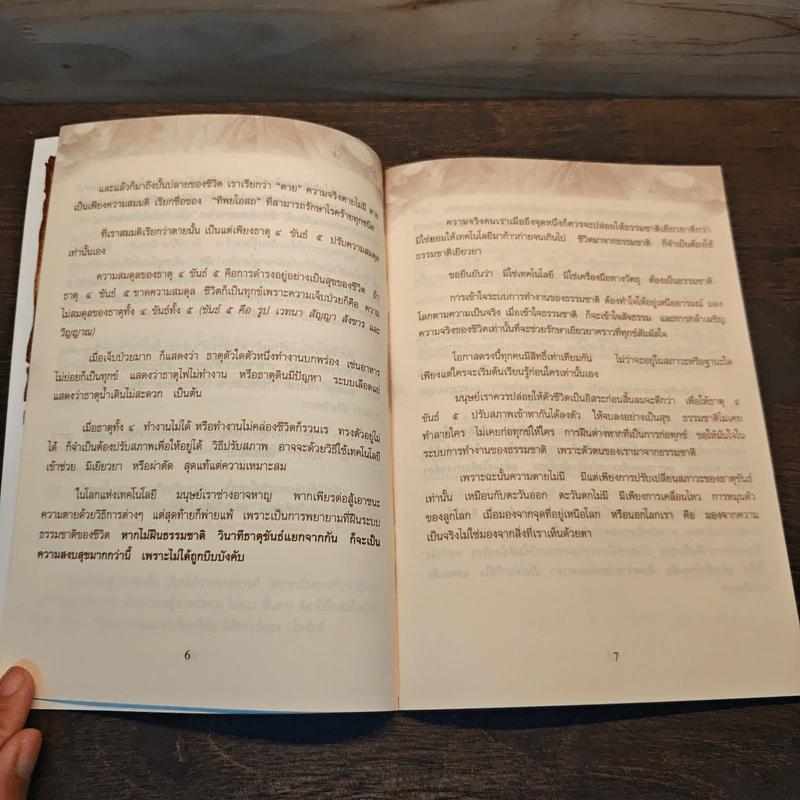 และแล้วก็มาถึงบั้นปลายของชีวิต เราเรียกว่า “ตาย” ความจริงตายไม่มี ตาย
เป็นเพียงความสมมติ เรียกชื่อของ “ทิพยโอสถ” ที่สามารถรักษาโรคร้ายทุกชนิด
ที่เราสมมติเรียกว่าตายนั้น เป็นแต่เพียงธาตุ ๔ ขันธ์ ๕ ปรับความสมดุล
เท่านั้นเอง
ความสมดุลของธาตุ ๔ ขันธ์ ๕ คือการดำรงอยู่อย่างเป็นสุขของชีวิต ถ้า
ธาตุ ๔ ขันธ์ ๕ ขาดความสมดุล ชีวิตก็เป็นทุกข์เพราะความเจ็บป่วยก็คือ ความ
ไม่สมดุลของธาตุทั้ง ๔ ขันธ์ทั้ง ๕ (ขันธ์ ๕ คือ รูป เวทนา สัญญา สังขาร และ
วิญญาณ)
เมื่อเจ็บป่วยมาก ก็แสดงว่า ธาตุตัวใดตัวหนึ่งทำงานบกพร่อง เช่นอาหาร
ไม่ย่อยก็เป็นทุกข์ แสดงว่าธาตุไฟไม่ทำงาน หรือธาตุดินมีปัญหา ระบบเลือดแย่
แสดงว่าธาตุน้ำเดินไม่สะดวก เป็นต้น
เมื่อธาตุทั้ง ๔ ทำงานไม่ได้ หรือทำงานไม่คล่องชีวิตก็รวนเร ทรงตัวอยู่ไม่
ได้ ก็จำเป็นต้องปรับสภาพเพื่อให้อยู่ได้ วิธีปรับสภาพ อาจจะด้วยวิธีใช้เทคโนโลยี
เข้าช่วย มีเยียวยา หรือผ่าตัด สุดแท้แต่ความเหมาะสม
ในโลกแห่งเทคโนโลยี มนุษย์เราช่างอาจหาญ พากเพียรต่อสู้เอาชนะ
ความตายด้วยวิธีการต่างๆ แต่สุดท้ายก็พ่ายแพ้ เพราะเป็นการพยายามที่ฝืนระบบ
ธรรมชาติของชีวิต หากไม่ฝืนธรรมชาติ วินาทีธาตุขันธ์แยกจากกัน ก็จะเป็น
ความสงบสุขมากกว่านี้ เพราะไม่ได้ถูกบีบบังคับ
6
ความจริงคนเราเมื่อถึงจุดหนึ่งก็ควรจะปล่อยให้ธรรมชาติเยียวยาดีกว่า
มิใช่ยอมให้เทคโนโลยีมาก้าวก่ายจนเกินไป ชีวิตมาจากธรรมชาติ ก็จำเป็นต้องใช้
ธรรมชาติเยียวยา
ขอยืนยันว่า มิใช่เทคโนโลยี มิใช่เครื่องมือทางวัตถุ ต้องเป็นธรรมชาติ
การเข้าใจระบบการทำงานของธรรมชาติ ต้องทำใจให้อยู่เหนืออารมณ์ มอง
โลกตามความเป็นจริง เมื่อเข้าใจธรรมชาติ ก็จะเข้าใจสัจธรรม และการกล้าเผชิญ
ความจริงของชีวิตเท่านั้นที่จะช่วยรักษาเยียวยาคราวที่ทุกข์สัมผัสใจ
โอกาสตรงนี้ทุกคนมีสิทธิ์เท่าเทียมกัน ไม่ว่าจะอยู่ในสภาวะหรือฐานะใด
เพียงแต่ใครจะเริ่มต้นเรียนรู้ก่อนใครเท่านั้นเอง
มนุษย์เราควรปล่อยให้ตัวชีวิตเป็นอิสระก่อนสิ้นลมจะดีกว่า เพื่อให้ธาตุ ๔
ขันธ์ ๕ ปรับสภาพเข้าหากันได้ลงตัว ให้จบลงอย่างเป็นสุข ธรรมชาติไม่เคย
ทำลายใคร ไม่เคยก่อทุกข์ให้ใคร การฝืนต่างหากที่เป็นการก่อทุกข์ ขอให้มั่นใจใน
ระบบการทำงานของธรรมชาติ เพราะตัวตนของเรามาจากธรรมชาติ
เพราะฉะนั้นความตายไม่มี มีแต่เพียงการปรับเปลี่ยนสภาวะของธาตุขันธ์
เท่านั้น เหมือนกับตะวันออก ตะวันตกไม่มี มีเพียงการเคลื่อนไหว การหมุนตัว
ของลูกโลก เมื่อมองจากจุดที่อยู่เหนือโลก หรือนอกโลกเรา คือ มองจากความ
เป็นจริงไม่ใช่มองจากสิ่งที่เราเห็นด้วยตา
7